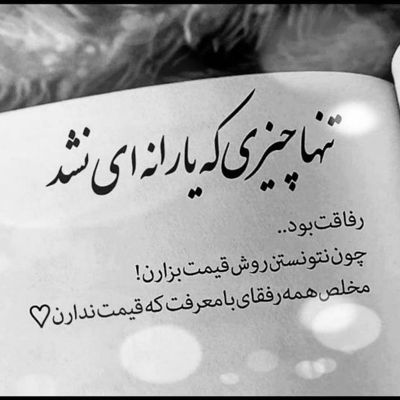 تنها چیزی که یارانه ای نشد
رفاقت بود..
چون نتونستن روش قیمت بزارن!
مخلص همه رفقای با معرفت که قیمت ندارن♡